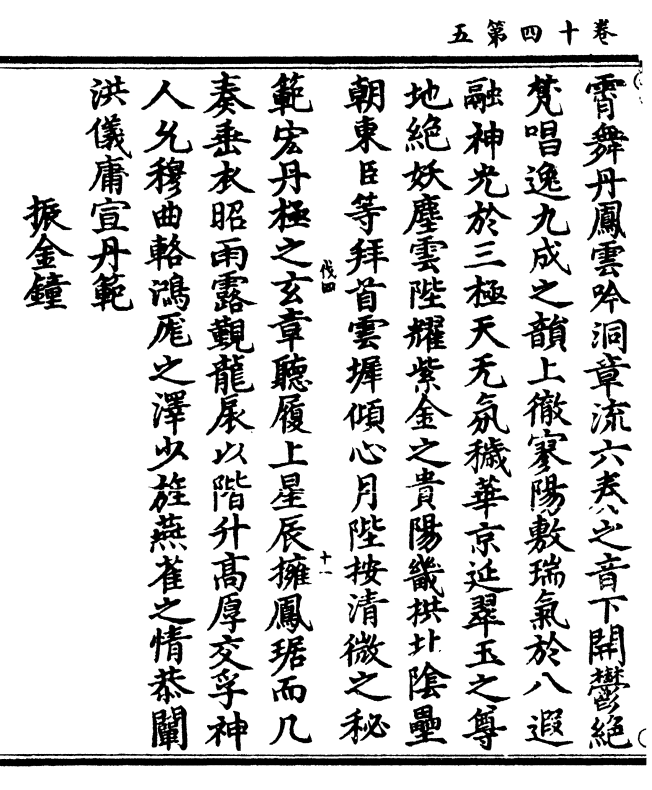 卷十四第五
霄舞丹鳳雲吟洞章流六奏之音下開鬱絕
梵唱逸九成之韻上徹寥陽敷瑞氣於八遐
融神光於三極天无氛穢華京延翠玉之尊
地絕妖塵雲陛耀紫金之貴陽畿拱北陰壘
朝東臣等拜首雲墀傾心月陛按清微之秘
範宏丹極之玄章聽履上星辰擁鳳琚而几
伐四
十一
奏垂衣昭雨露覲龍扆以階升高厚交孚神
人允穆曲輅鴻厖之澤少旌燕雀之情恭闡
洪儀庸宣丹範
振金鐘